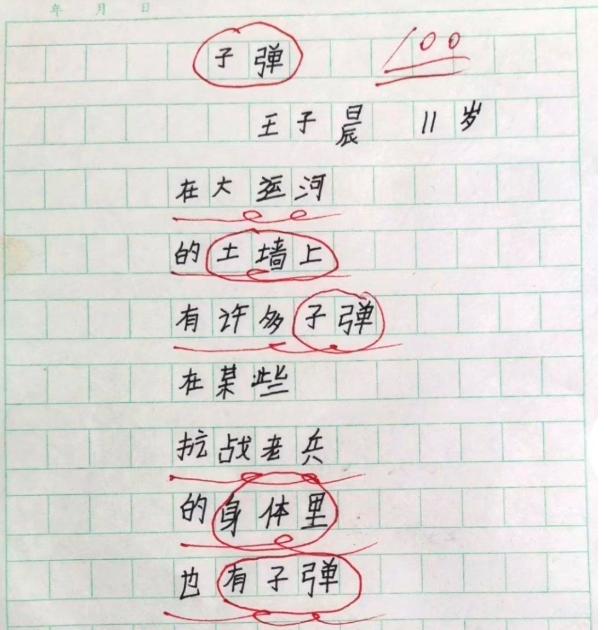 年 月 日
子弹
100
王子晨 11岁
在大运河
的土墙上
有许多子弹
在某些
抗战老兵
的身体里
也有子弹